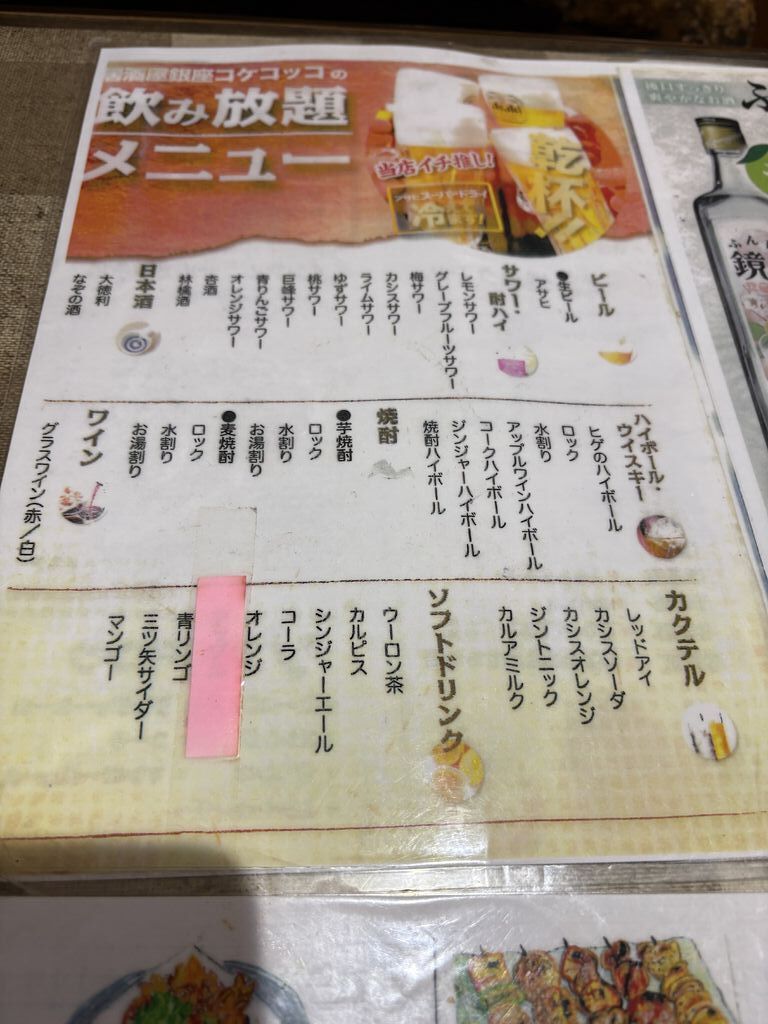 居酒屋銀座コケコッコの
飲み放題
メニュー
当店イチ推し!
アサヒスーパードライ
冷えてます!
乾杯!!
ビール
●生ビール
アサヒ
サワー・
酎ハイ
レモンサワー
グレープフルーツサワー
梅サワー
カシスサワー
ライムサワー
ゆずサワー
桃サワー
巨峰サワー
青りんごサワー
オレンジサワー
杏酒
林檎酒
日本酒
大徳利
なぞの酒
ハイボール・
ウイスキー
ヒゲのハイボール
ロック
水割り
アップルワインハイボール
コークハイボール
ジンジャーハイボール
焼酎ハイボール
焼酎
●芋焼酎
ロック
水割り
お湯割り
●麦焼酎
ロック
水割り
お湯割り
ワイン
グラスワイン(赤/白)
カクテル
レッドアイ
カシスソーダ
カシスオレンジ
ジントニック
カルアミルク
ソフトドリンク
ウーロン茶
カルピス
シンジャーエール
コーラ
オレンジ
青リンゴ
三ツ矢サイダー
マンゴー
後口すっきり
爽やかなお酒
ふ
ふん
鏡